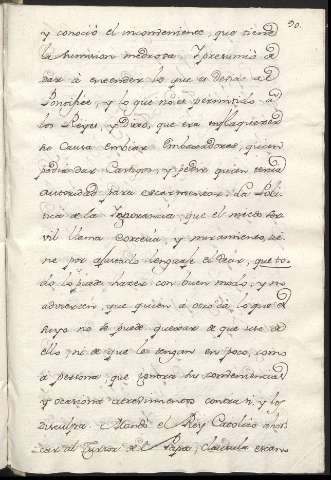 90.
y conoció el inconveniente, que tiene
la sumision medrosa. Y presumió de
dar á entender lo que se debia al
Pontifice, y lo que no es permitido á
los Reyes, y Dixo, que era enflaquecer
su causa embiar Embaxadores, quien
podia dar Castigo, y pedir quien tenia
autoridad para escarmentar. La Poli
tica de la Ignorancia, que el miedo ser
vil llama Cordura, y miramiento, tie
ne por asentado lenguaje el decir, que to
do lo puede hacer con buen modo, y no
advierten, que quien á otro dá lo que el
suyo no se puede quexar de que use de
ello, ni de que le tengan en poco, como
á persona que ignora su conveniencia,
y ocasiona atrevimientos contra si, y los
disculpa. Mandó el Rey Catolico ahor
car al Cursor del Papa, clausula escan